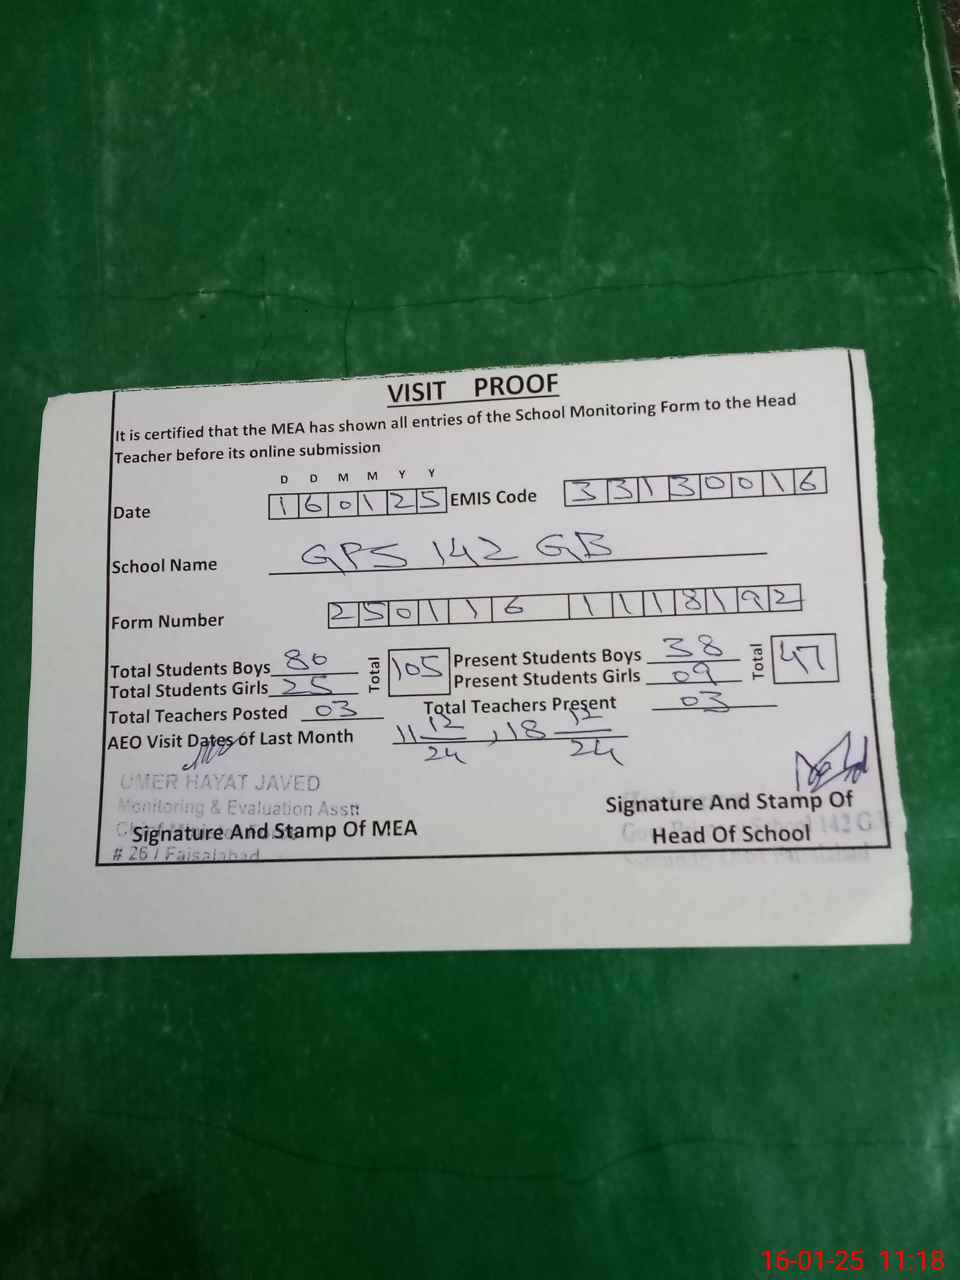 VISIT PROOF
It is certified that the MEA has shown all entries of the School Monitoring Form to the Head
Teacher before its online submission
D D M M Y Y
Date 160125 EMIS Code 33130016
School Name GPS 142 GB
Form Number 250116 1118192
Total Students Boys 80 Total 105 Present Students Boys 38 Total 47
Total Students Girls 25 Present Students Girls 09
Total Teachers Posted 03 Total Teachers Present 03
AEO Visit Dates of Last Month 11 12/24, 18 12/24
UMER HAYAT JAVED
Monitoring & Evaluation Asstt
Signature And Stamp Of MEA
# 26 / Faisalabad
Signature And Stamp Of
Head Of School
142 G
16-01-25 11:18